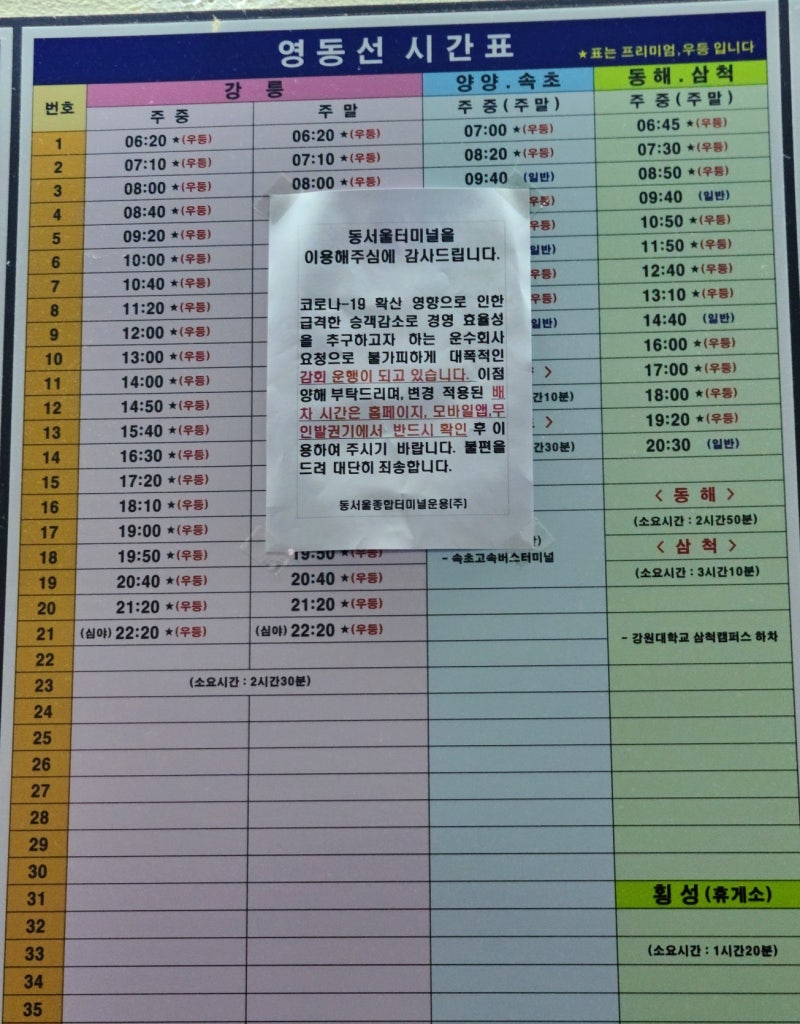 영동선 시간표
★표는 프리미엄,우등 입니다
번호 강 릉 양양.속초 동해.삼척
주 중 주 말 주 중(주말) 주 중(주말)
1 06:20 ★(우등) 06:20 ★(우등) 07:00 ★(우등) 06:45 ★(우등)
2 07:10 ★(우등) 07:10 ★(우등) 08:20 ★(우등) 07:30 ★(우등)
3 08:00 ★(우등) 08:00 ★(우등) 09:40 (일반) 08:50 ★(우등)
4 08:40 ★(우등) 우등) 09:40 (일반)
5 09:20 ★(우등) 일반) 10:50 ★(우등)
6 10:00 ★(우등) 우등) 11:50 ★(우등)
7 10:40 ★(우등) 우등) 12:40 ★(우등)
8 11:20 ★(우등) 일반) 13:10 ★(우등)
9 12:00 ★(우등) 14:40 (일반)
10 13:00 ★(우등) 16:00 ★(우등)
11 14:00 ★(우등) > 17:00 ★(우등)
12 14:50 ★(우등) 간10분) 18:00 ★(우등)
13 15:40 ★(우등) > 19:20 ★(우등)
14 16:30 ★(우등) 간30분) 20:30 (일반)
15 17:20 ★(우등)
16 18:10 ★(우등) < 동 해 >
17 19:00 ★(우등) (소요시간 : 2시간50분)
18 19:50 ★(우등) 19:50 ★(우등) - 속초고속버스터미널 < 삼 척 >
19 20:40 ★(우등) 20:40 ★(우등) (소요시간 : 3시간10분)
20 21:20 ★(우등) 21:20 ★(우등)
21 (심야) 22:20 ★(우등) (심야) 22:20 ★(우등) - 강원대학교 삼척캠퍼스 하차
22
23 (소요시간 : 2시간30분)
24
25
26
27
28
29
30
31 횡 성 (휴게소)
32
33 (소요시간 : 1시간20분)
34
35
동서울터미널을
이용해주심에 감사드립니다.
코로나-19 확산 영향으로 인한
급격한 승객감소로 경영 효율성
을 추구하고자 하는 운수회사
요청으로 불가피하게 대폭적인
감회 운행이 되고 있습니다. 이점
양해 부탁드리며, 변경 적용된 배
차 시간은 홈페이지, 모바일앱,무
인발권기에서 반드시 확인 후 이
용하여 주시기 바랍니다. 불편을
드려 대단히 죄송합니다.
동서울종합터미널운용(주)